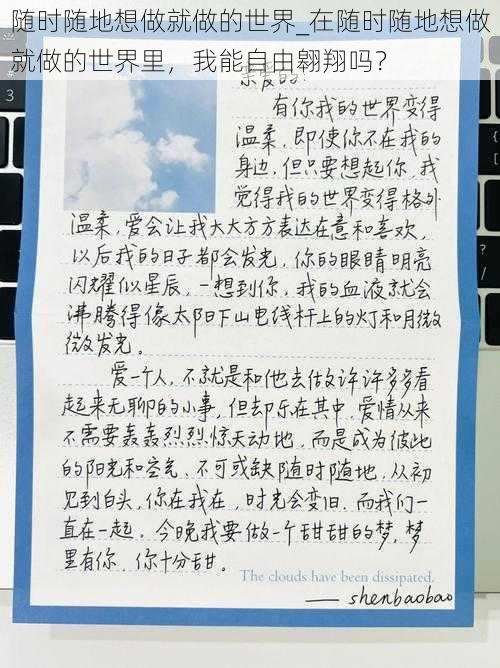 随时随地想做就做的世界_在随时随地想做
就做的世界里，我能自由翱翔吗？
亲爱的：
有你我的世界变得
温柔，即使你不在我的
身边，但只要想起你，我
觉得我的世界变得格外
温柔，爱会让我大大方方表达在意和喜欢，
以后我的日子都会发光，你的眼睛明亮
闪耀似星辰，一想到你，我的血液就会
沸腾得像太阳下山电线杆上的灯和月微
微发光。
爱一个人，不就是和他去做许许多多看
起来无聊的小事，但却乐在其中，爱情从来
不需要轰轰烈烈惊天动地，而是成为彼此
的阳光和空气、不可或缺随时随地，从初
见到白头，你在我在，时光会变旧，而我们一
直在一起，今晚我要做一个甜甜的梦，梦
里有你，你十分甜。
The clouds have been dissipated.
— shenbaobao